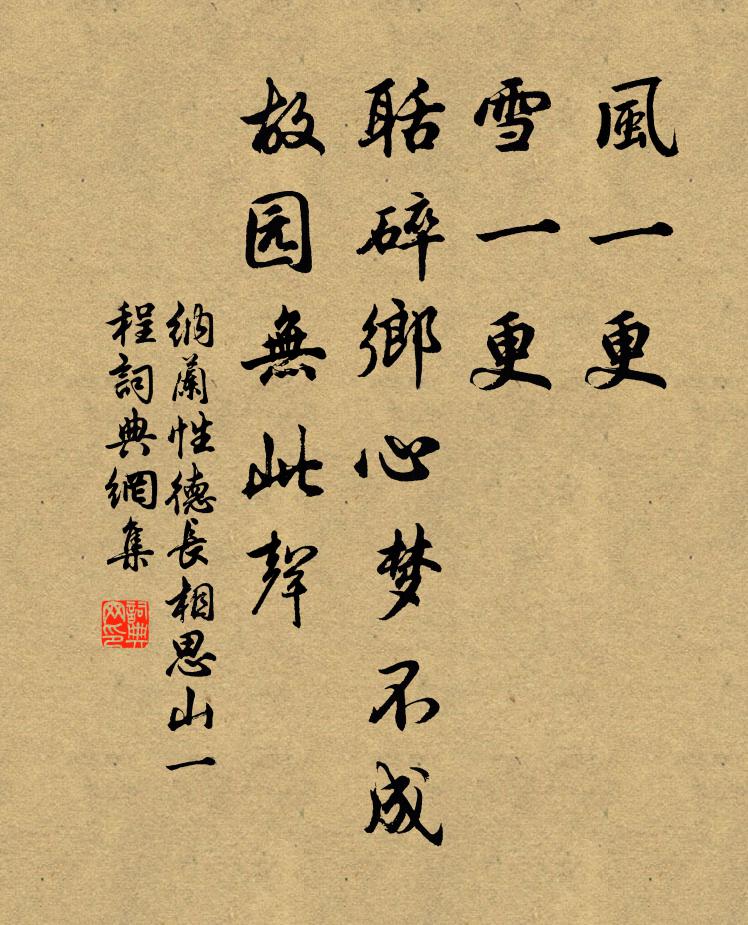 風一更
雪一更
聒碎鄉心梦不成
故园無此聲
納蘭性德長相思山一
程詞典網集
詞典
网印